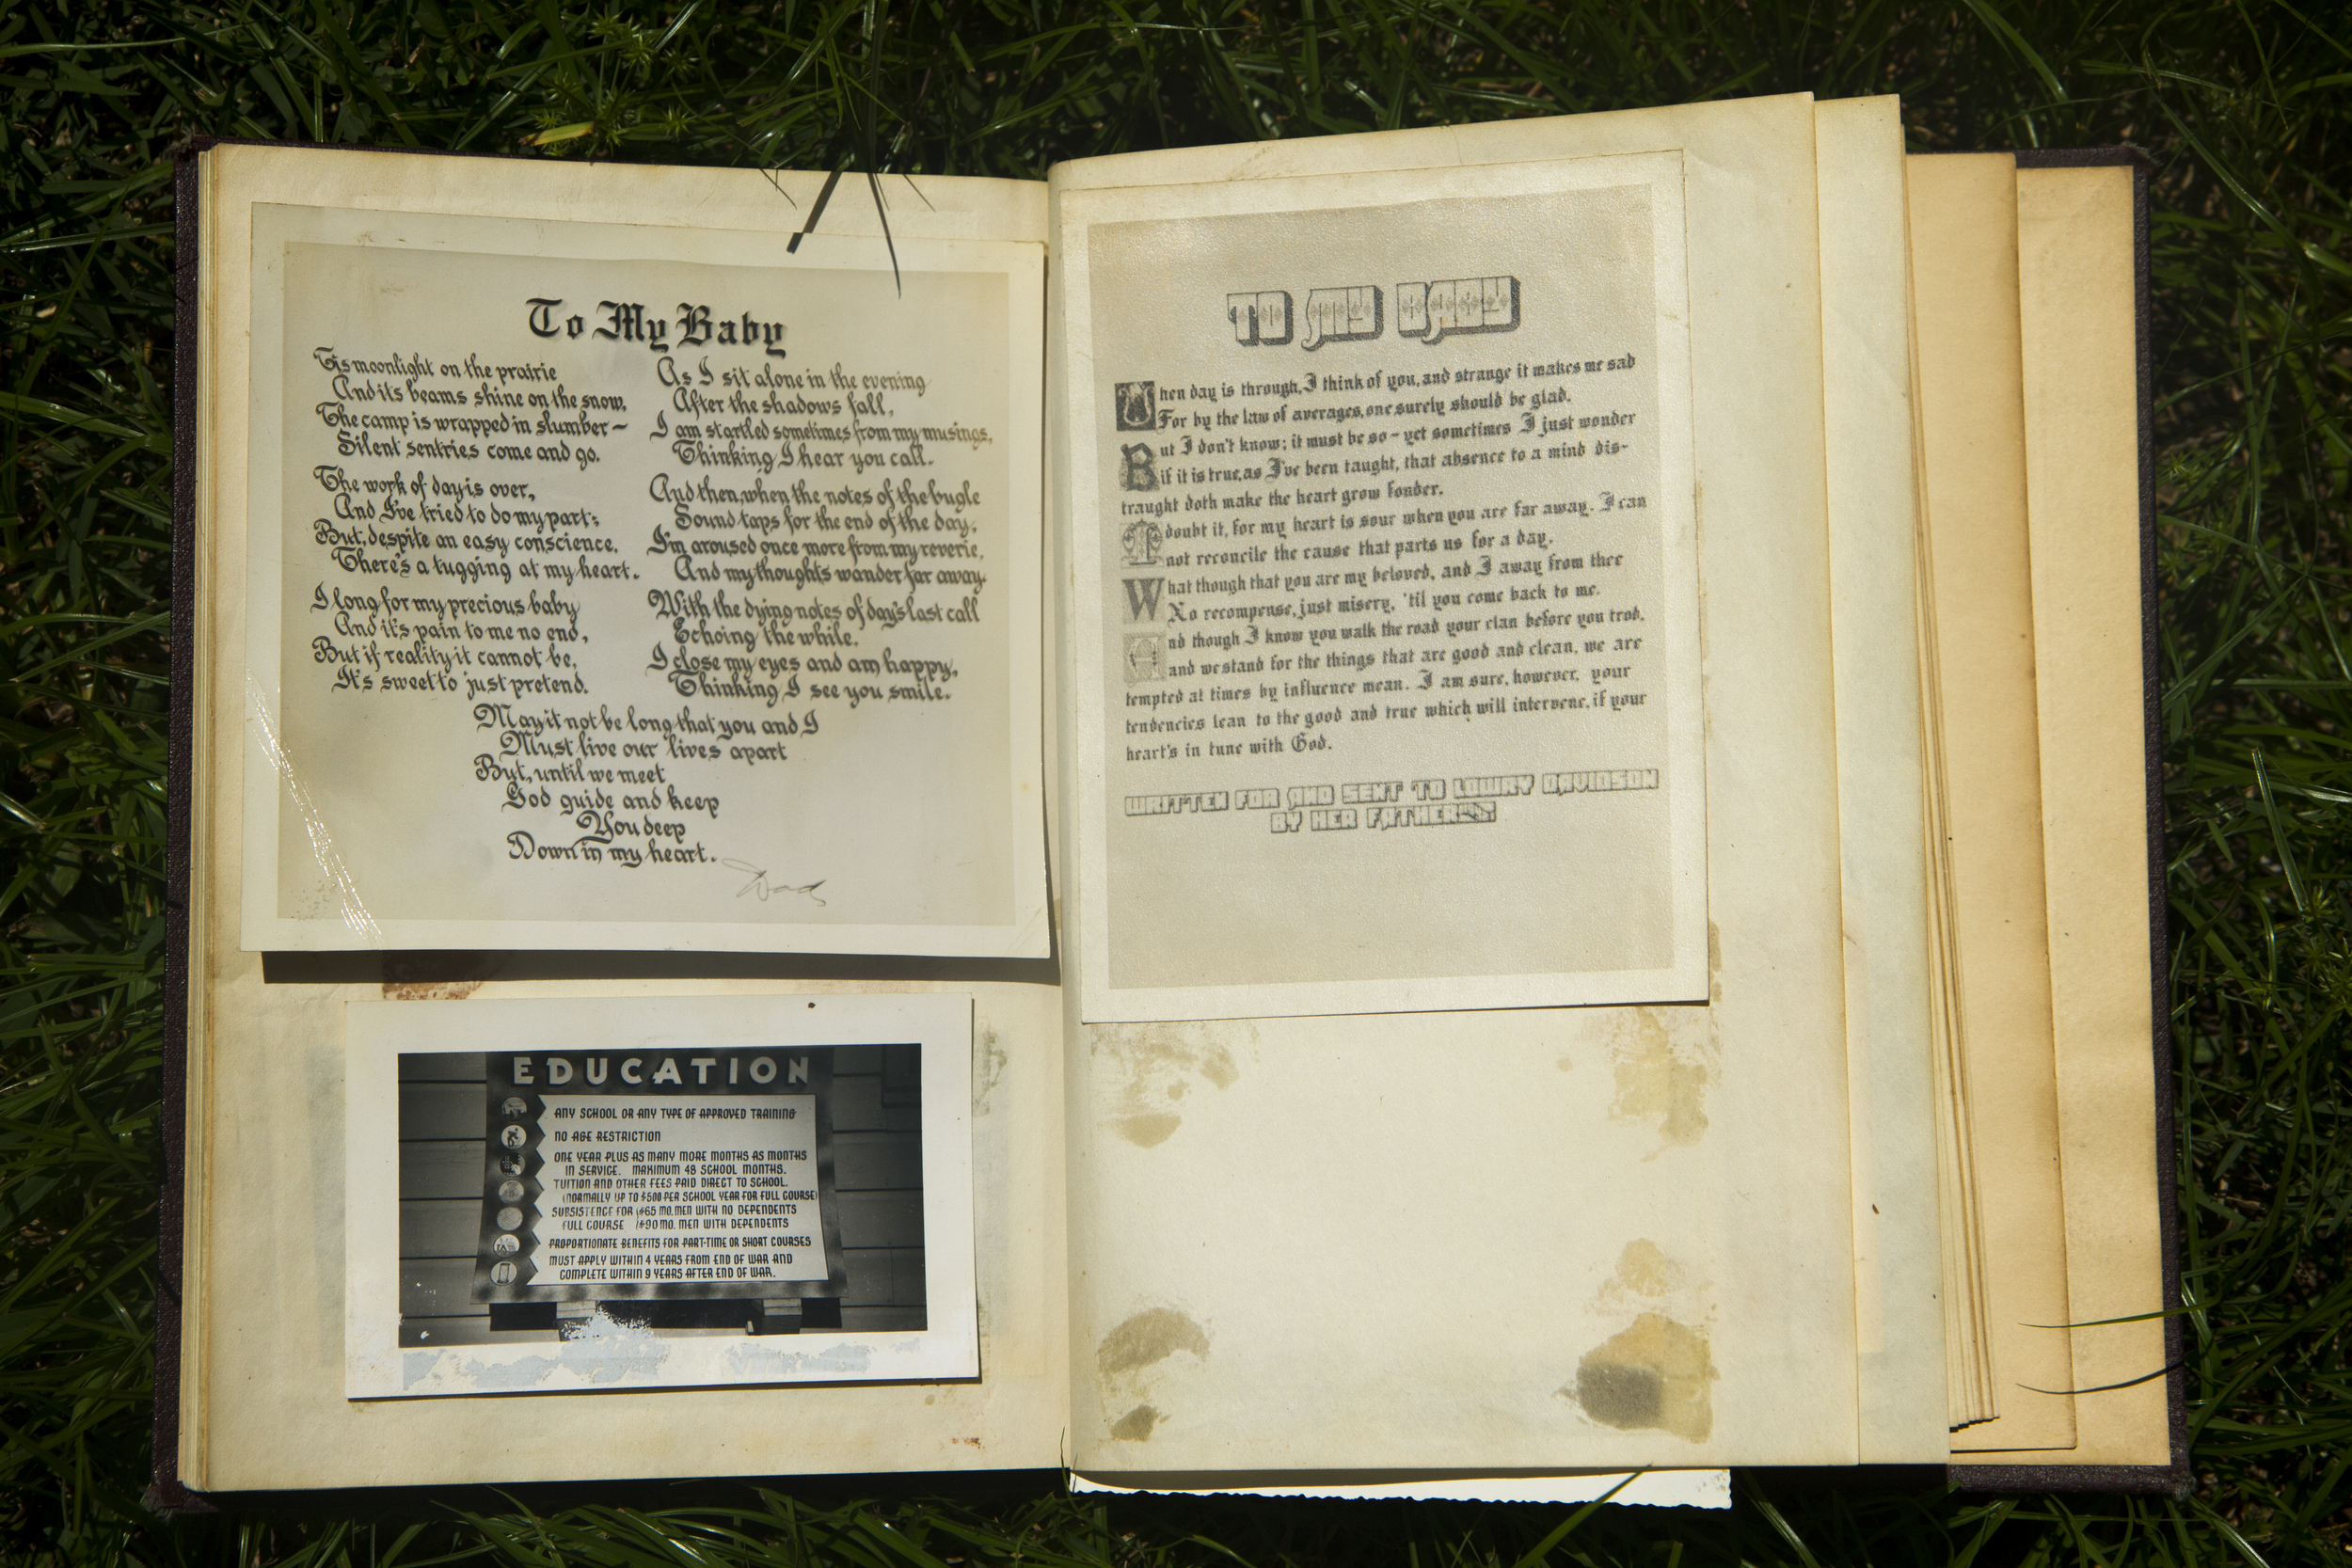 To My Baby
'Tis moonlight on the prairie
And its beams shine on the snow,
The camp is wrapped in slumber —
Silent sentries come and go.
The work of day is over,
And I've tried to do my part;
But, despite an easy conscience,
There's a tugging at my heart.
I long for my precious baby
And it's pain to me no end,
But if reality it cannot be,
It's sweet to just pretend.
As I sit alone in the evening
After the shadows fall,
I am startled sometimes from my musings,
Thinking I hear you call.
And then, when the notes of the bugle
Sound taps for the end of the day,
I'm aroused once more from my reverie,
And my thoughts wander far away.
With the dying notes of day's last call
Echoing the while.
I close my eyes and am happy,
Thinking I see you smile.
May it not be long that you and I
Must live our lives apart
But, until we meet
God guide and keep
You deep
Down in my heart.
Dad
EDUCATION
ANY SCHOOL OR ANY TYPE OF APPROVED TRAINING
NO AGE RESTRICTION
ONE YEAR PLUS AS MANY MORE MONTHS AS MONTHS
IN SERVICE. MAXIMUM 48 SCHOOL MONTHS.
TUITION AND OTHER FEES PAID DIRECT TO SCHOOL.
(NORMALLY UP TO $500 PER SCHOOL YEAR FOR FULL COURSE)
SUBSISTENCE FOR ($65 MO. MEN WITH NO DEPENDENTS
FULL COURSE ($90 MO. MEN WITH DEPENDENTS
PROPORTIONATE BENEFITS FOR PART-TIME OR SHORT COURSES
MUST APPLY WITHIN 4 YEARS FROM END OF WAR AND
COMPLETE WITHIN 9 YEARS AFTER END OF WAR.
TO MY BABY
When day is through, I think of you, and strange it makes me sad
For by the law of averages, one surely should be glad.
But I don't know; it must be so - yet sometimes I just wonder
if it is true, as I've been taught, that absence to a mind dis-
traught doth make the heart grow fonder.
I doubt it, for my heart is sour when you are far away. I can
not reconcile the cause that parts us for a day.
What though that you are my beloved, and I away from thee
No recompense, just misery, 'til you come back to me.
And though I know you walk the road your clan before you trod,
and we stand for the things that are good and clean, we are
tempted at times by influence mean. I am sure, however, your
tendencies lean to the good and true which will intervene, if your
heart's in tune with God.
WRITTEN FOR AND SENT TO LOWRY DAVIDSON
BY HER FATHER